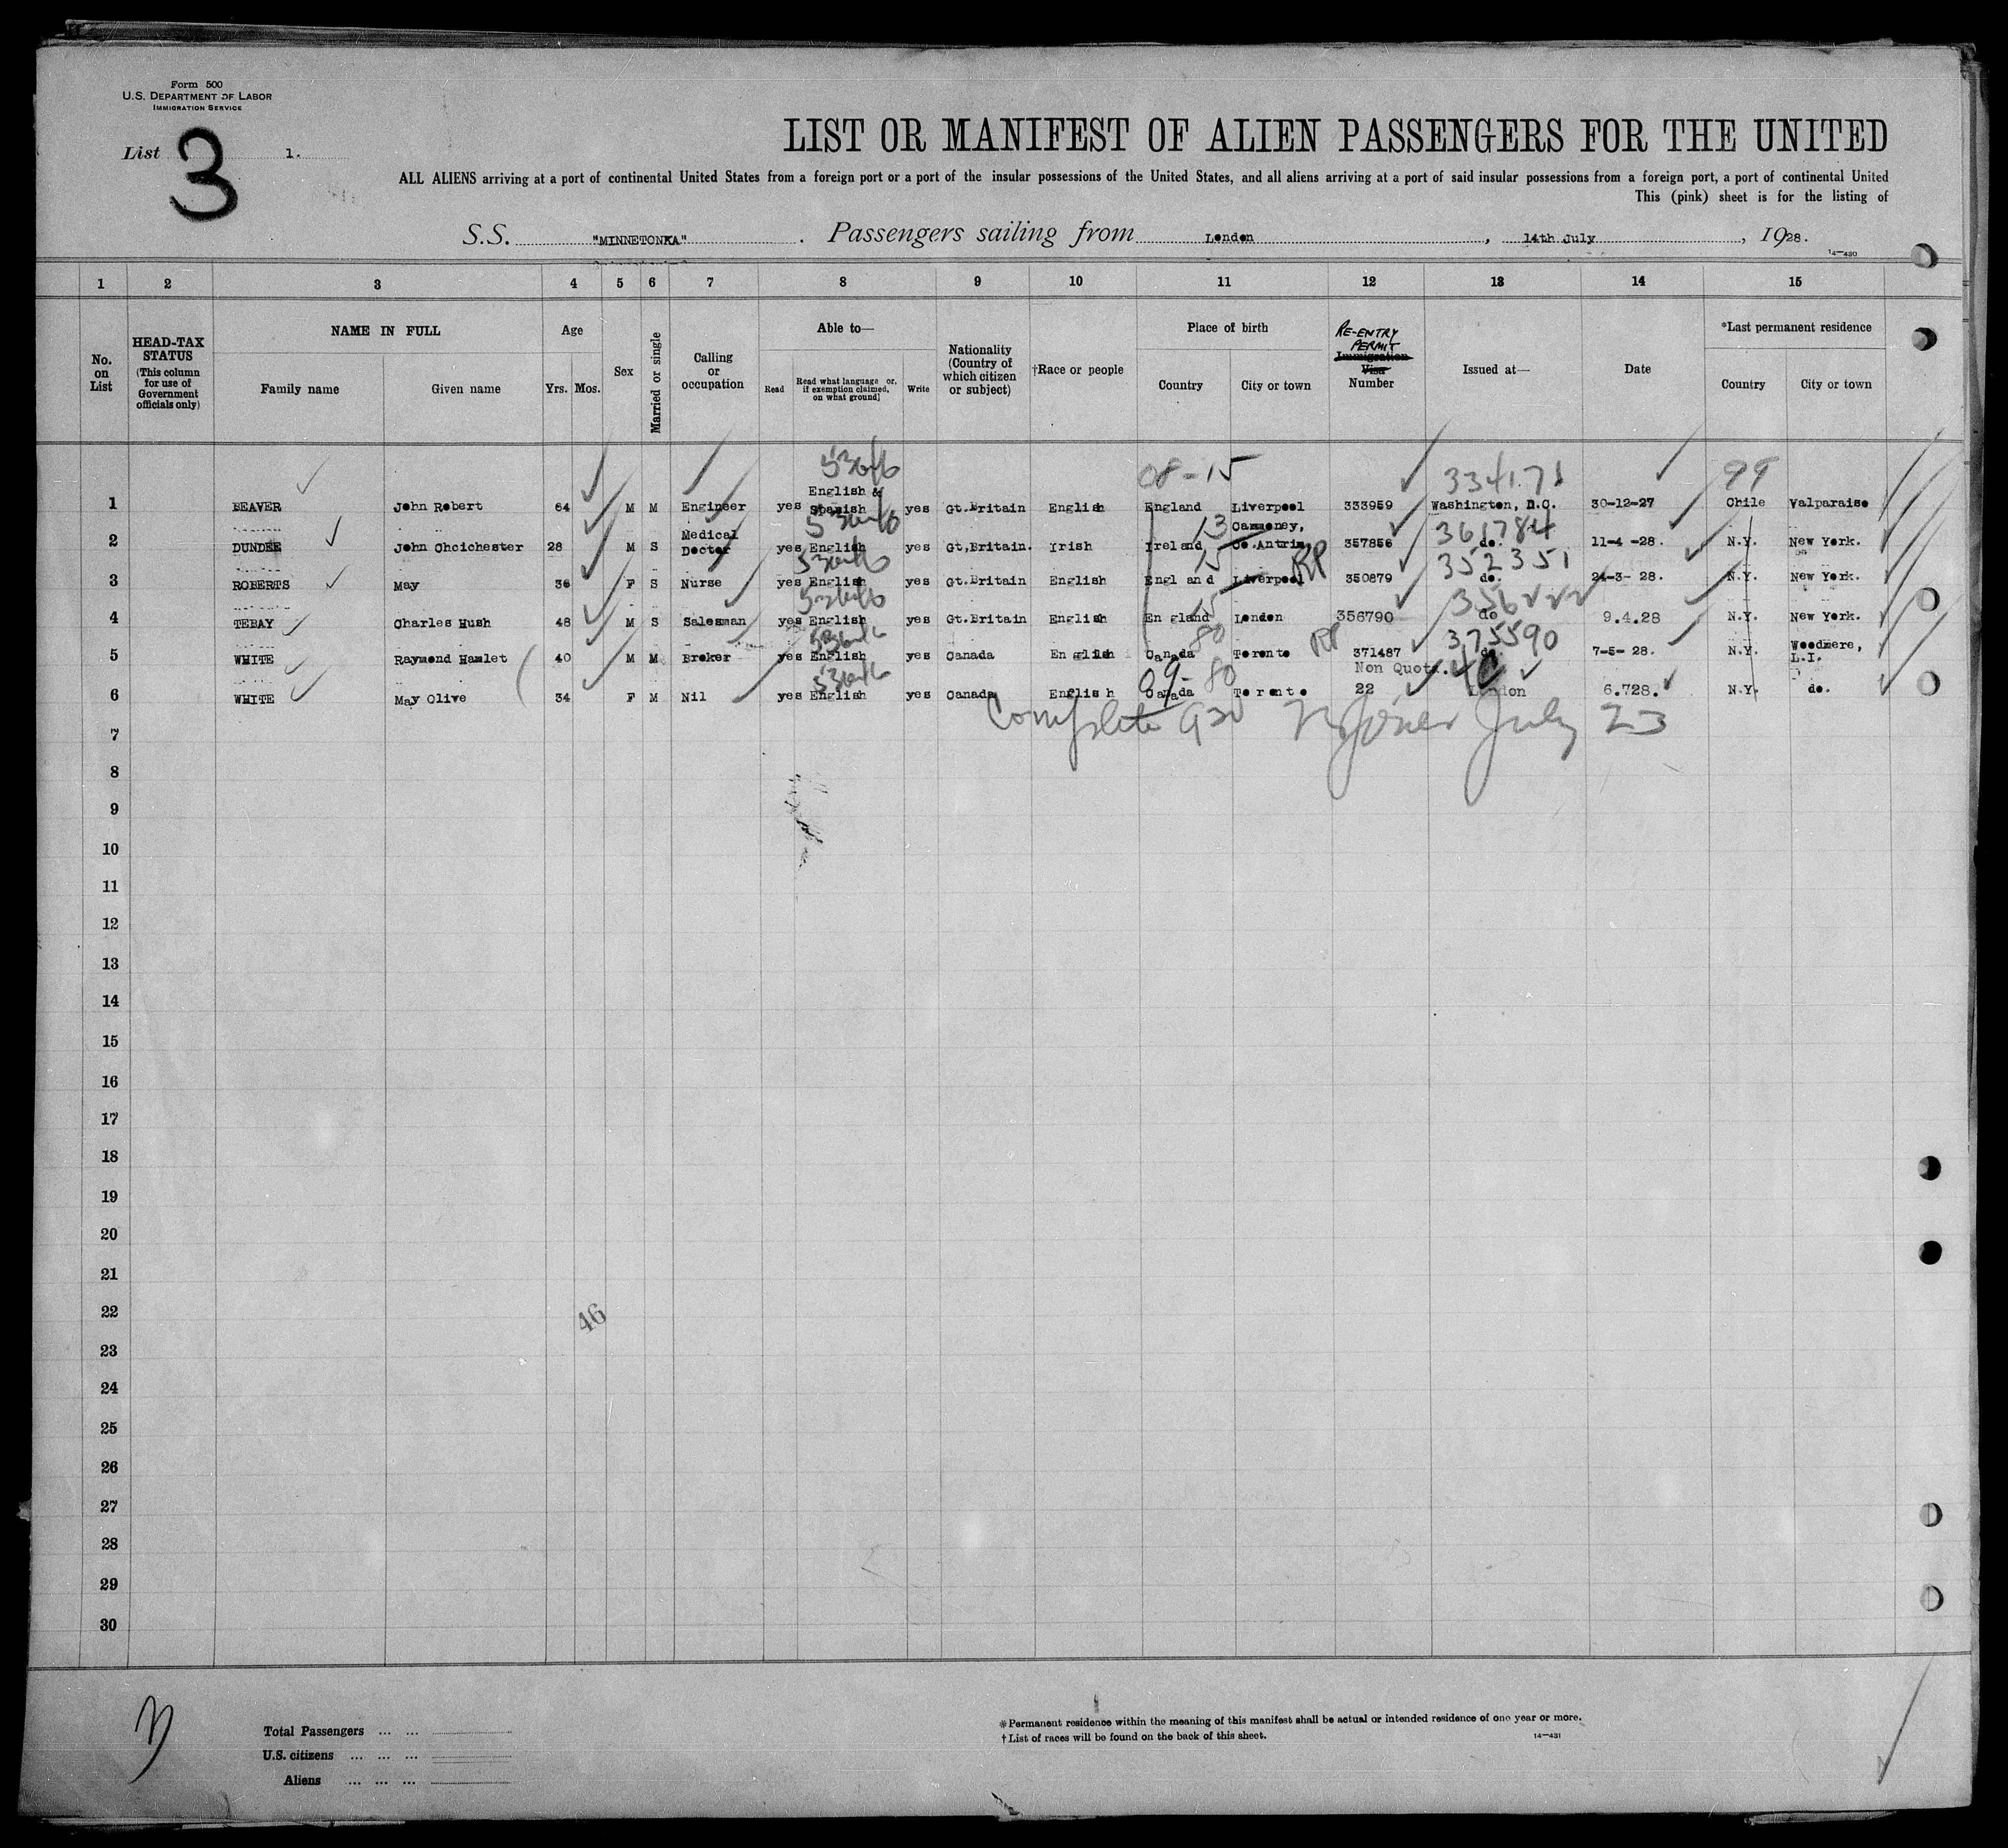 Form 500
U.S. DEPARTMENT OF LABOR
IMMIGRATION SERVICE
List 3 1.
LIST OR MANIFEST OF ALIEN PASSENGERS FOR THE UNITED
ALL ALIENS arriving at a port of continental United States from a foreign port or a port of the insular possessions of the United States, and all aliens arriving at a port of said insular possessions from a foreign port, a port of continental United
This (pink) sheet is for the listing of
S.S. "MINNETONKA" . Passengers sailing from London , 14th July , 1928.
14—430
1 2 3 4 5 6 7 8 9 10 11 12 13 14 15
No. on List
HEAD-TAX STATUS (This column for use of Government officials only)
NAME IN FULL
Family name Given name
Age
Yrs. Mos.
Sex
Married or single
Calling or occupation
Able to—
Read Read what language or, if exemption claimed, on what ground] Write
Nationality (Country of which citizen or subject)
†Race or people
Place of birth
Country City or town
RE-ENTRY PERMIT
Immigration Visa Number
Issued at—
Date
*Last permanent residence
Country City or town
53646 08-15 334171 99
1 BEAVER John Robert 64 M M Engineer yes English & Spanish yes Gt.Britain English England Liverpool 333959 Washington, D.C. 30-12-27 Chile Valparaiso
13 361784
2 DUNDEE John Chcichester 28 M S Medical Doctor yes English yes Gt,Britain. Irish Ireland Carmoney, Co.Antrim 357856 do. 11-4 -28. N.Y. New York.
15 RP 352351
3 ROBERTS May 36 F S Nurse yes English yes Gt.Britain English Engl and Liverpool 350879 do. 24-3- 28. N.Y. New York.
15 356222
4 TEBAY Charles Hush 48 M S Salesman yes English yes Gt.Britain English En gland London 356790 do 9.4.28 N.Y. New York.
80 RP 375590
5 WHITE Raymond Hamlet 40 M M Broker yes English yes Canada English Canada Toronto 371487 do. 7-5- 28. N.Y. Woodmere, L.I.
09-80 Non Quota.
6 WHITE May Olive 34 F M Nil yes English yes Canada English Canada Toronto 22 London 6.728. N.Y. do.
Complete July 23
7
8
9
10
11
12
13
14
15
16
17
18
19
20
21
22
46
23
24
25
26
27
28
29
30
Total Passengers ... ...
U.S. citizens ... ... ...
Aliens ... ... ...
*Permanent residence within the meaning of this manifest shall be actual or intended residence of one year or more.
†List of races will be found on the back of this sheet.
14—431